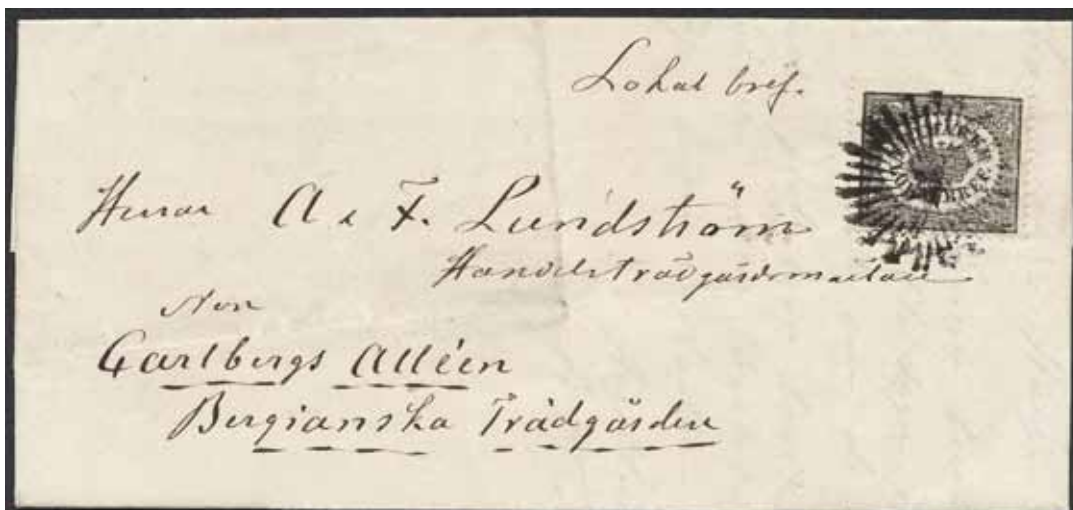 Lokal bref.
Herrar A & F. Lundström
Handelsträdgårdsmästare
Carlbergs Alléen
Bergianska Trädgården